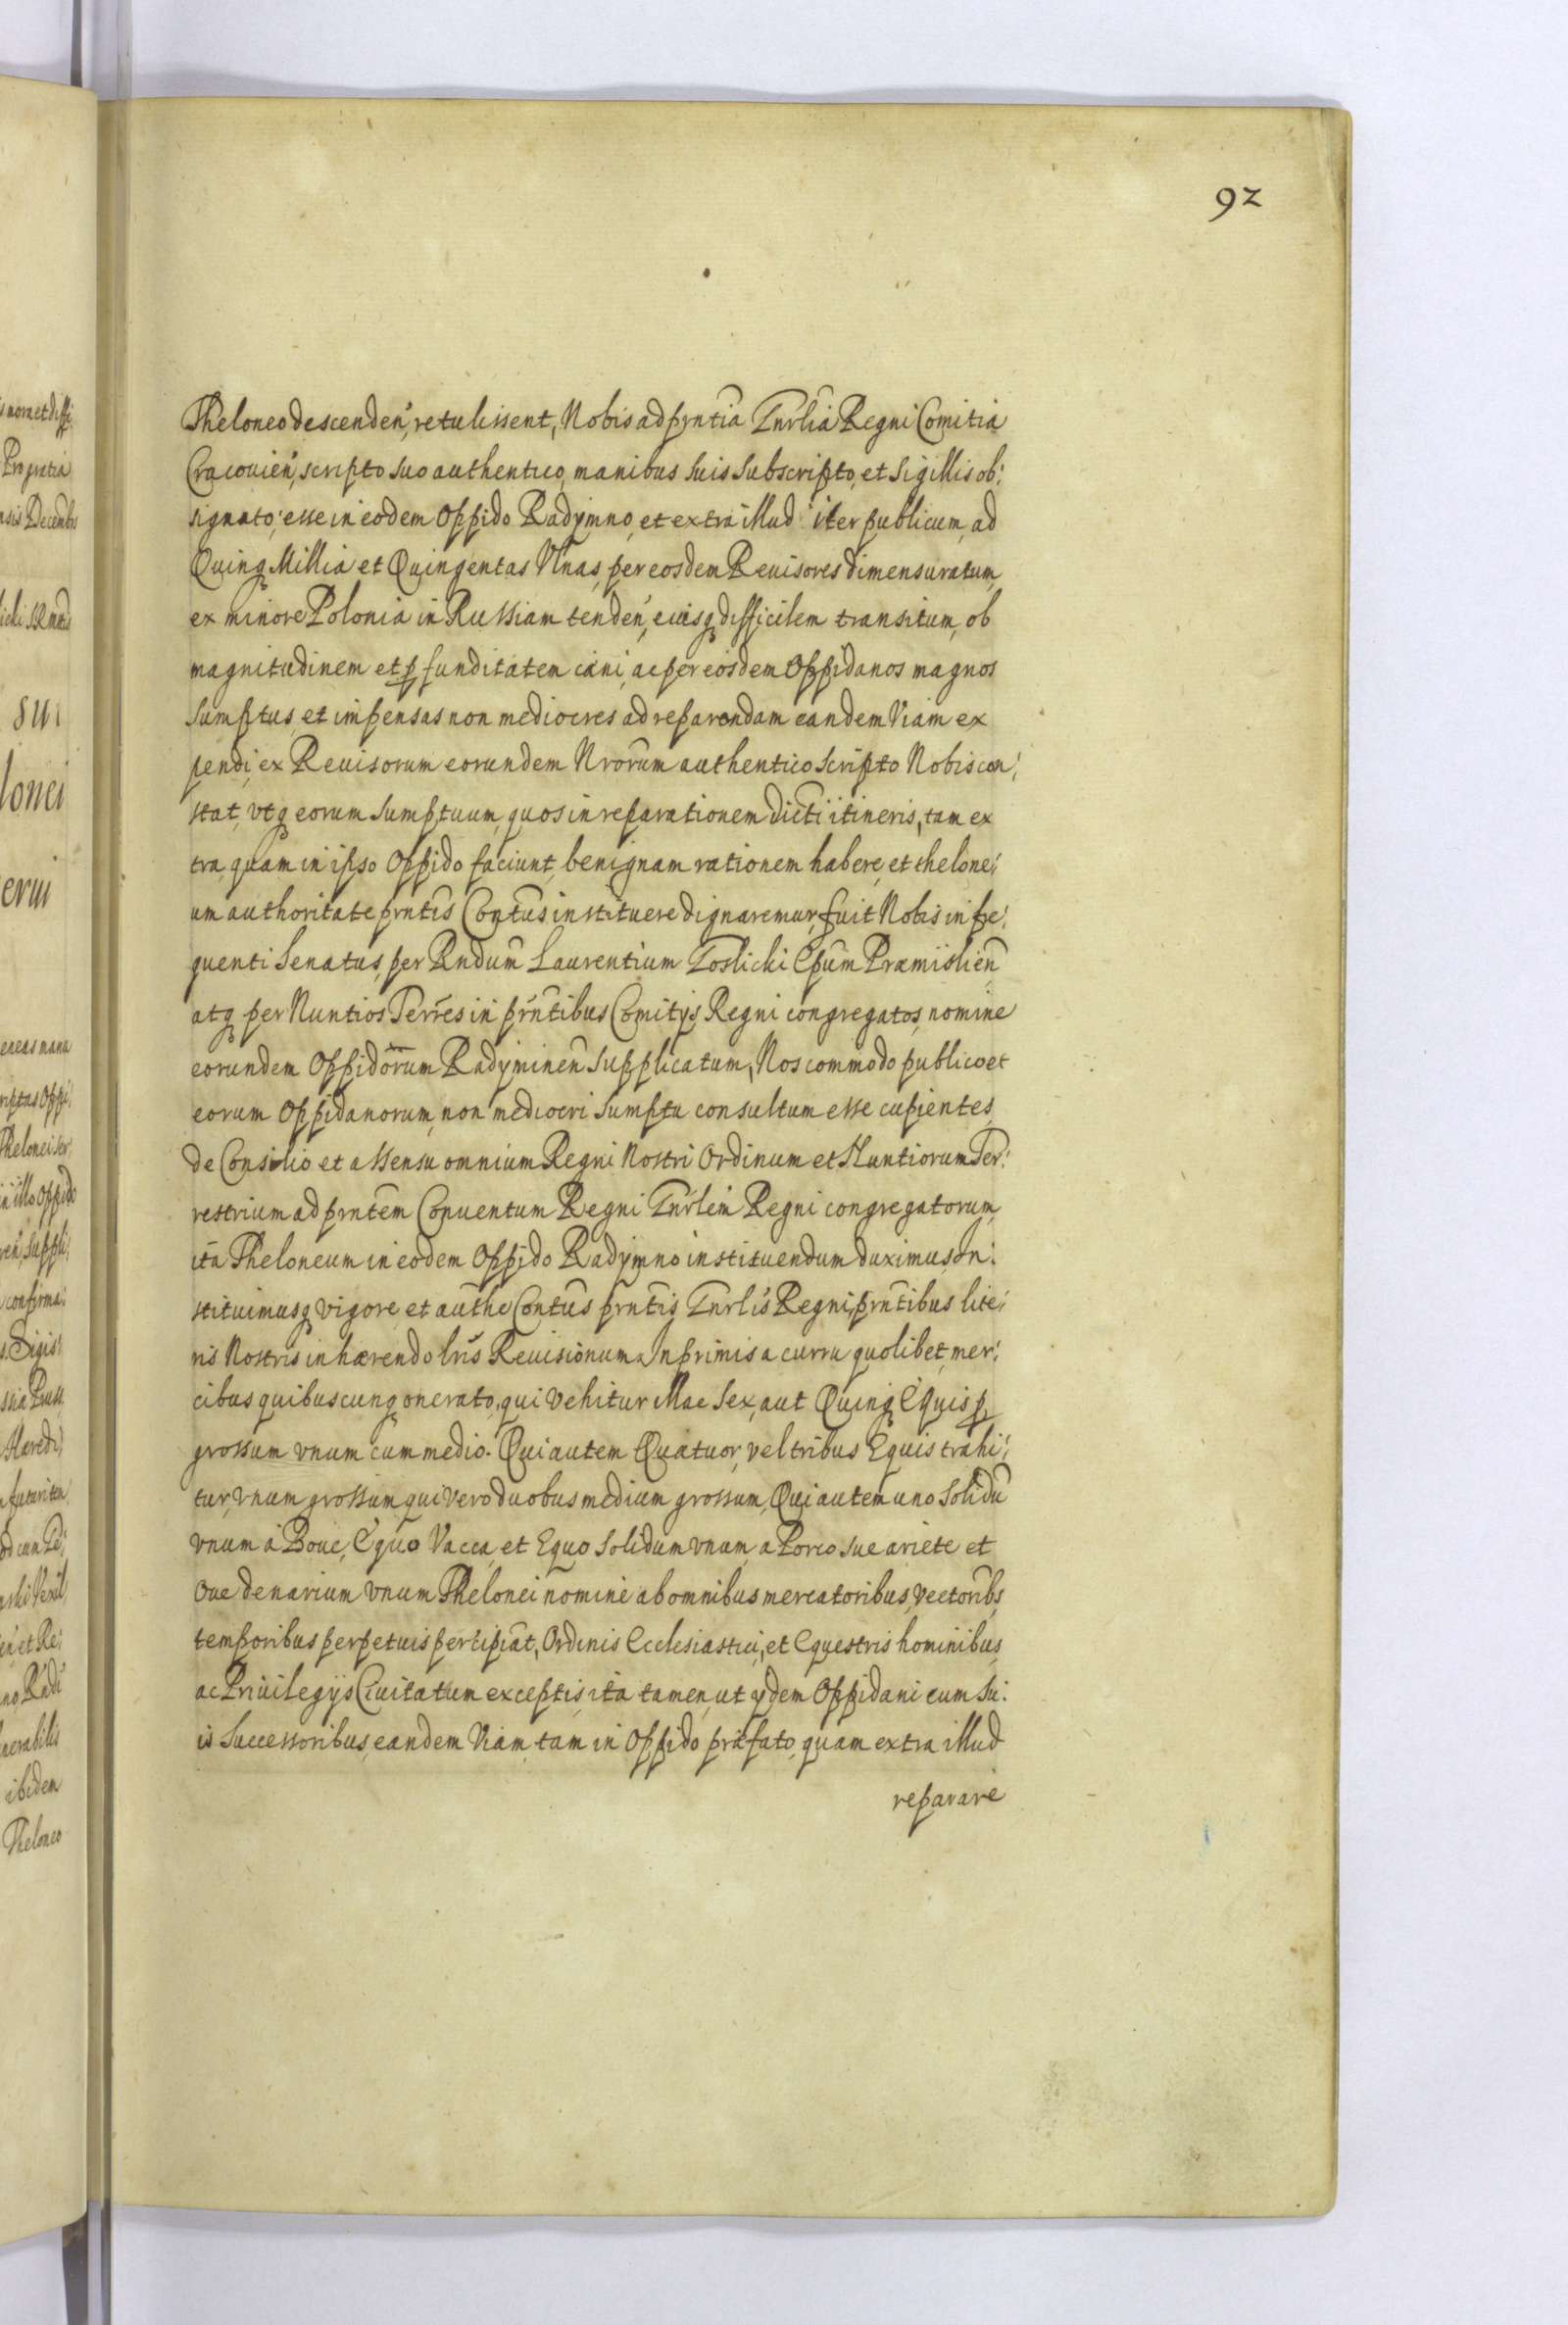 92
Theloneo descenden̄, retulissent, Nobis ad prntia Gnrlia Regni Comitia
Cracouien̄, scripto suo authentico, manibus suis subscripto, et sigillis ob:
signato, esse in eodem Oppido Radymno, et extra illud iter publicum, ad
Quinq Millia et Quingentas Vlnas, per eosdem Reuisores dimensuratum,
ex minore Polonia in Russiam tenden̄, eiusq difficilem transitum, ob
magnitudinem et pfunditatem cæni, ac per eosdem Oppidanos magnos
sumptus, et impensas non mediocres ad reparandam eandem Viam ex
pendi, ex Reuisorum eorundem Nrorum authentico scripto Nobis con:
stat, vtq eorum sumptuum, quos in reparationem dicti itineris, tam ex
tra, quam in ipso Oppido faciunt, benignam rationem habere, et thelone:
um authoritate prntis Contus instituere dignaremur, fuit Nobis in fre:
quenti Senatus, per Rndum Laurentium Goslicki Epum Præmislien̄
atq per Nuntios Terres in prntibus Comitijs Regni congregatos, nomine
eorundem Oppidorum Radyminen̄ supplicatum, Nos commodo publico et
eorum Oppidanorum, non mediocri sumptu consultum esse cupientes,
de Consilio et assensu omnium Regni Nostri Ordinum et Nuntiorum Ter:
restrium ad prntem Conuentum Regni Gnrlem Regni congregatorum,
ita Theloneum in eodem Oppido Radymno instituendum duximus, In:
stituimusq vigore, et authe Contus prntis Gnrlis Regni, prntibus lite:
ris Nostris inhærendo lris Reuisionum. Inprimis a curru quolibet, mer:
cibus quibuscunq onerato, qui vehitur siue sex, aut Quinq Equis p
grossum vnum cum medio. Qui autem Quatuor, vel tribus Equis trahi:
tur, vnum grossum, qui vero duobus medium grossum, Qui autem uno solidu
vnum á Boue, Equo Vacca, et Equo solidum vnum, a Porco sue ariete et
Oue denarium vnum Thelonei nomine ab omnibus mercatoribus, vectoribs,
temporibus perpetuis percipiāt, Ordinis Ecclesiastici, et Equestris hominibus,
ac Priuilegijs Ciuitatum exceptis, ita tamen, ut ydem Oppidani cum su:
is Successoribus, eandem Viam, tam in Oppido præfato, quam extra illud
reparare
Pro gratia
sui
lonei
erui
ibidem
Theloneo